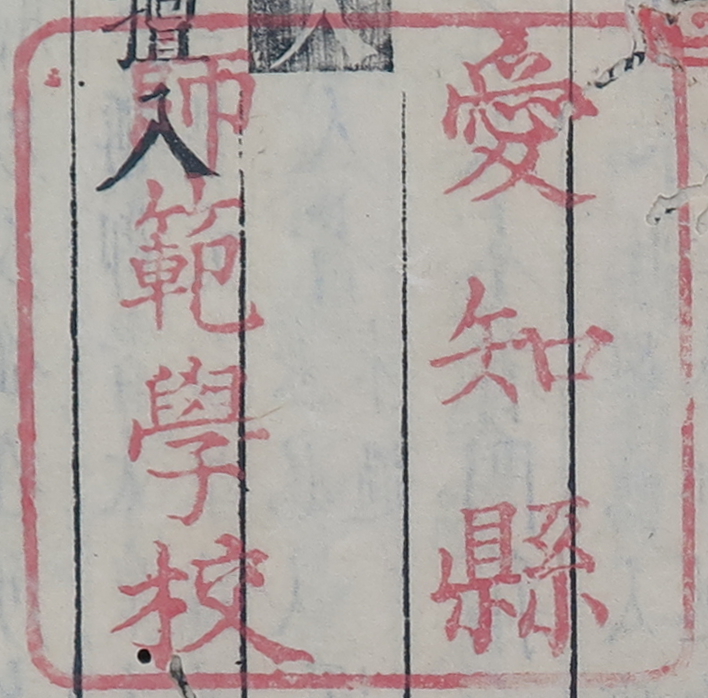 愛知縣
師範學校
擅入